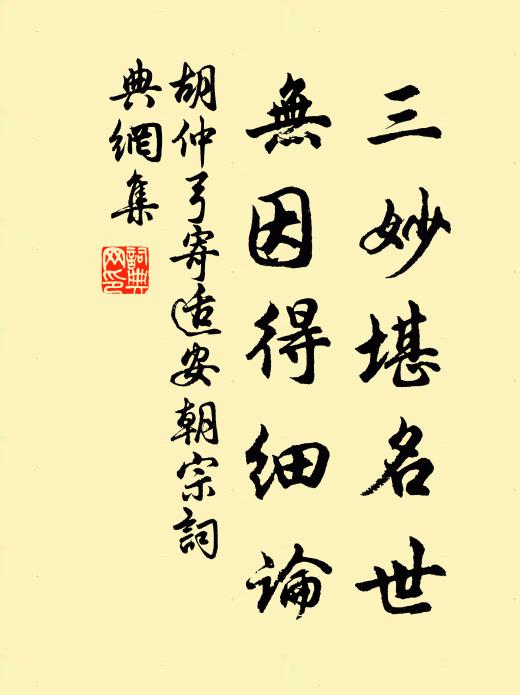 三妙堪名世
無因得細論
胡仲弓寄适安朝宗詞
典網集
詞典
网印